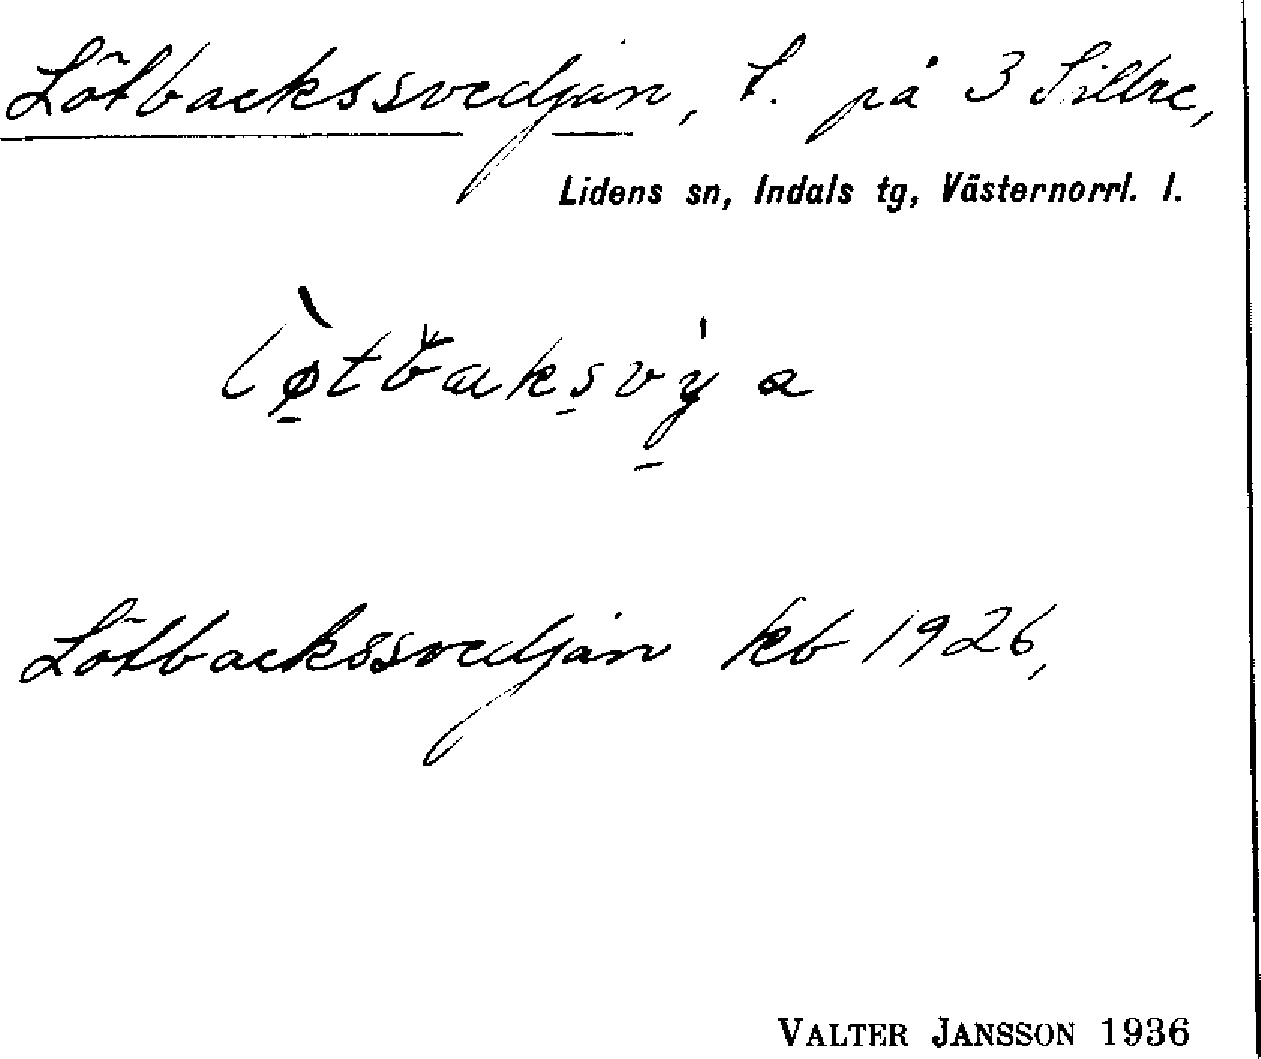 Lötbackssvedjan, t. på 3 Sillre,
Lidens sn, Indals tg, Västernorrl. l.
Lötbackssvedjan kb 1926,
VALTER JANSSON 1936